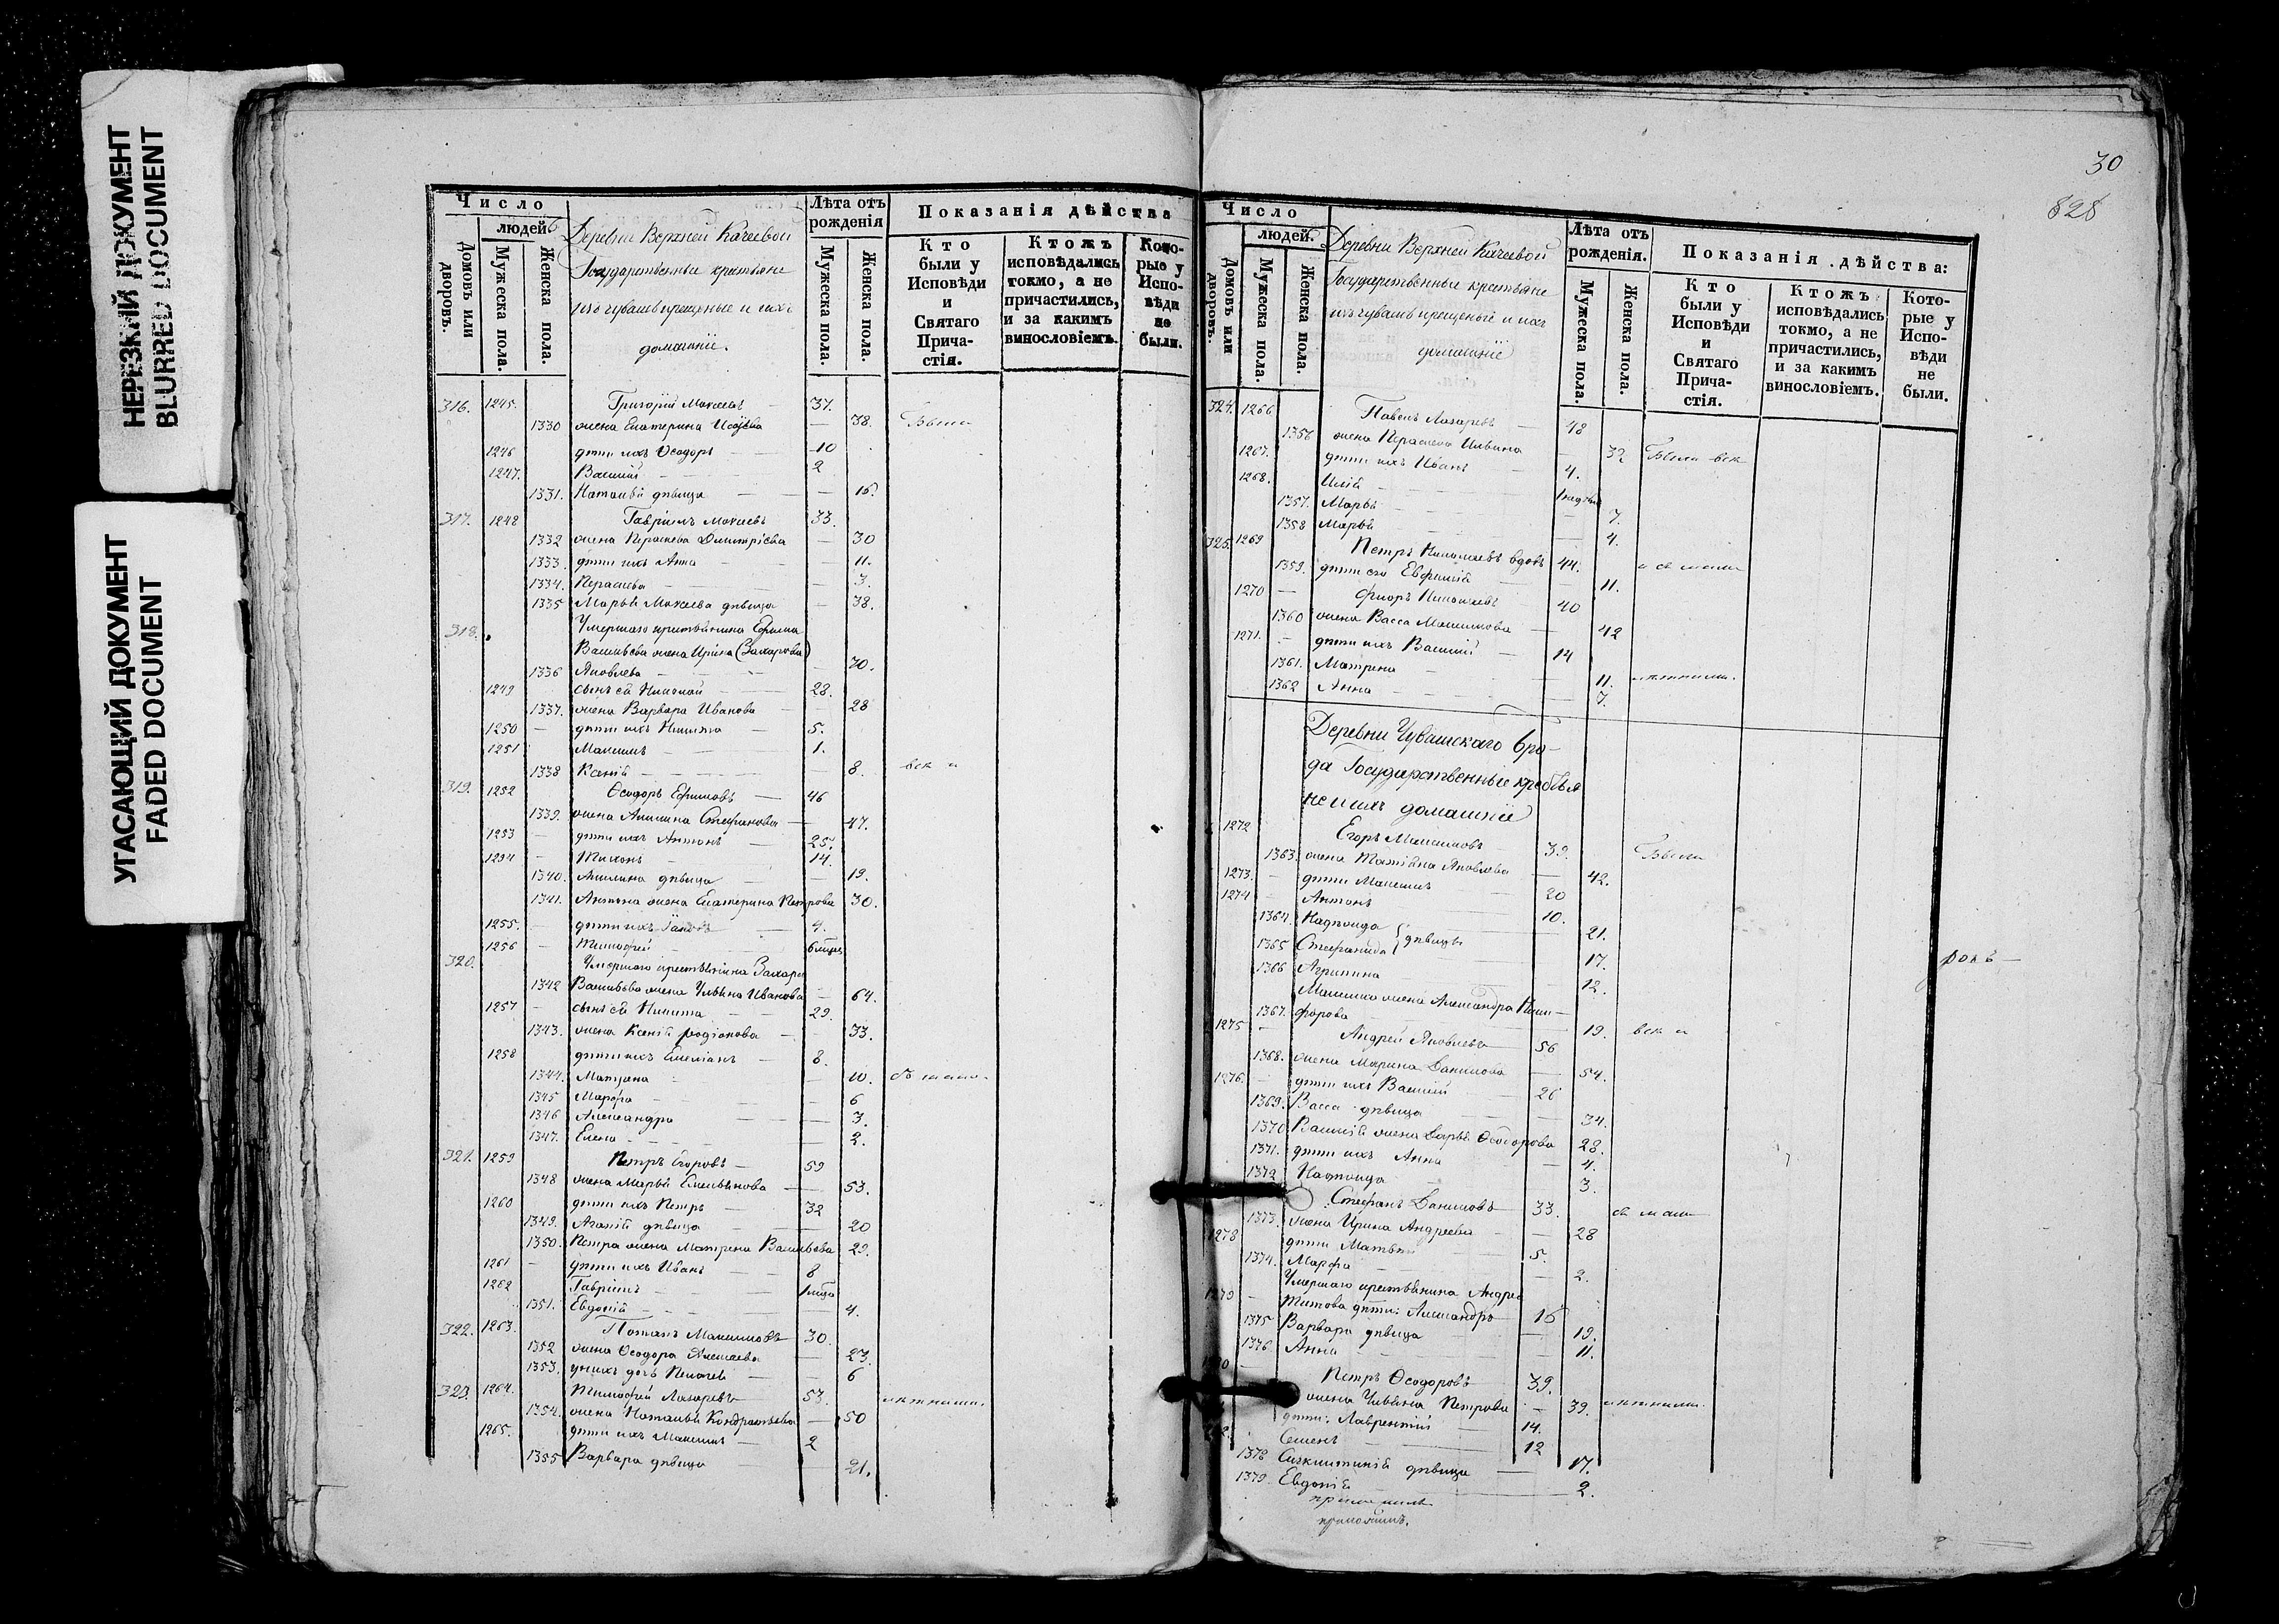 НЕРЕЗКИЙ ДОКУМЕНТ
BLURRED DOCUMENT
УГАСАЮЩИЙ ДОКУМЕНТ
FADED DOCUMENT
Число
людей.
Домовъ или дворовъ.
Мужеска пола.
Женска пола.
Деревни Верхней Качеевой
Государственные крестьяне
изъ чувашъ крещеные и ихъ
домашніе.
Лѣта отъ рожденія
Мужеска пола.
Женска пола.
Показанія дѣйства
Кто были у Исповѣди и Святаго Причастія.
Ктожъ исповѣдались токмо, а не причастились, и за какимъ винословіемъ.
Которые у Исповѣди не были.
316. 1245. Григорій Моисеевъ 37.
1330 жена Екатерина 38. Были
1246 дѣти ихъ Ѳеодоръ 10
1247. Василий 2
1331. Наталья дѣвица 15.
317. 1248 Гавріилъ Моисеевъ 33.
1332 жена Параскева Димитріева 30
1333. дѣти ихъ Анна 11.
1334. Параскева 3.
1335 Марья Моисеева дѣвица 38.
318. Умершаго крестьянина Ефима
Васильева жена Ирина (Захарова)
1336 Яковлева 70.
1249 сынъ ея Николай 28.
1337. жена Варвара Иванова 28
1250 дѣти ихъ Никита 5.
1251 Максимъ 1.
1338 Ксенія 8. всѣ и
319. 1252 Ѳеодоръ Ефимовъ 46
1339. жена Акилина Стефанова 47.
1253 дѣти ихъ Антонъ 25.
1254 Тихонъ 14.
1340. Акилина дѣвица 19.
1341. Антона жена Екатерина Петрова 30.
1255. дѣти ихъ Яковъ 4.
1256 Тимофей 6 мѣсяц
320. Умершаго крестьянина Захара
1342 Васильева жена Ульяна Иванова 64.
1257 сынъ ея Никита 29.
1343. жена Ксенія Родіонова 33.
1258 дѣти ихъ Емеліанъ 8.
1344. Матрена 10.
1345 Марфа 6
1346 Александра 3.
1347. Елена 2.
321. 1259 Петръ Егоровъ 59
1348 жена Марья Емельянова 53.
1260 дѣти ихъ Петръ 32
1349. Агафія дѣвица 20
1350. Петра жена Матрена Васильева 29.
1261 дѣти ихъ Иванъ 8
1262 Гавріилъ
1351. Евдокія 4.
322. 1263. Потапъ Максимовъ 30.
1352 жена Ѳеодора Алексеева 23.
1353. у нихъ дочь Пелагея 6
323. 1264. Тимофей Лазаревъ 53. лѣтними.
1354. жена Наталья Кондратьева 50
1265. дѣти ихъ Максимъ 2
1355 Варвара дѣвица 21.
30
828
Число
людей.
Домовъ или дворовъ.
Мужеска пола.
Женска пола.
Деревни Верхней Качеевой
Государственные крестьяне
изъ чувашъ крещеные и ихъ
домашніе
Лѣта отъ рожденія.
Мужеска пола.
Женска пола.
Показанія дѣйства:
Кто были у Исповѣди и Святаго Причастія.
Ктожъ исповѣдались токмо, а не причастились, и за какимъ винословіемъ.
Которые у Исповѣди не были.
324. 1266 Павелъ Лазаревъ 48
1356 жена Параскева Ильина 32 Были всѣ
1267. дѣти ихъ Иванъ 4.
1268. Илія
1357. Марья 7.
1358 Марья 4.
325. 1269 Петръ Николаевъ вдовъ 44.
1359. дѣти его Евфимія 11.
1270 Флоръ Николаевъ 40
1360 жена Васса Максимова 42
1271. дѣти ихъ Василий 14
1361. Матрена 11. лѣтними.
1362 Анна 7.
Деревни Чувашскаго бро-
да Государственные крестья
не и ихъ домашніе
1272 Егоръ Максимовъ 39. Были
1363. жена Татіана Яковлева 42.
1273. дѣти Максимъ 20
1274 Антонъ 10.
1364. 21.
1365 Стефанида дѣвицы 17.
1366 Агрипина 12.
Максима жена Александра Ники-
1367. форова 19. всѣ и
1275 Андрей Яковлевъ 56
1368. жена Марина Данилова 54.
1276. дѣти ихъ Василий 26
1369. Васса дѣвица 34.
1370 Василія жена Дарья Ѳеодорова 28.
1371. дѣти ихъ Анна 4.
1372 3.
Стефанъ Даниловъ 33.
1373. жена Ирина Андреева 28
1278 дѣти Матвей 5.
1374. Марфа 2.
Умершаго крестьянина Андрея
1279 Титова дѣти: Александръ 16
1375 Варвара дѣвица 19.
1376. Анна 11.
Петръ Ѳеодоровъ 39.
жена Ульяна Петрова 39. лѣтними.
дѣти: Лаврентій 14.
Семенъ 12
1378 дѣвица 17.
1379. Евдокія 2.